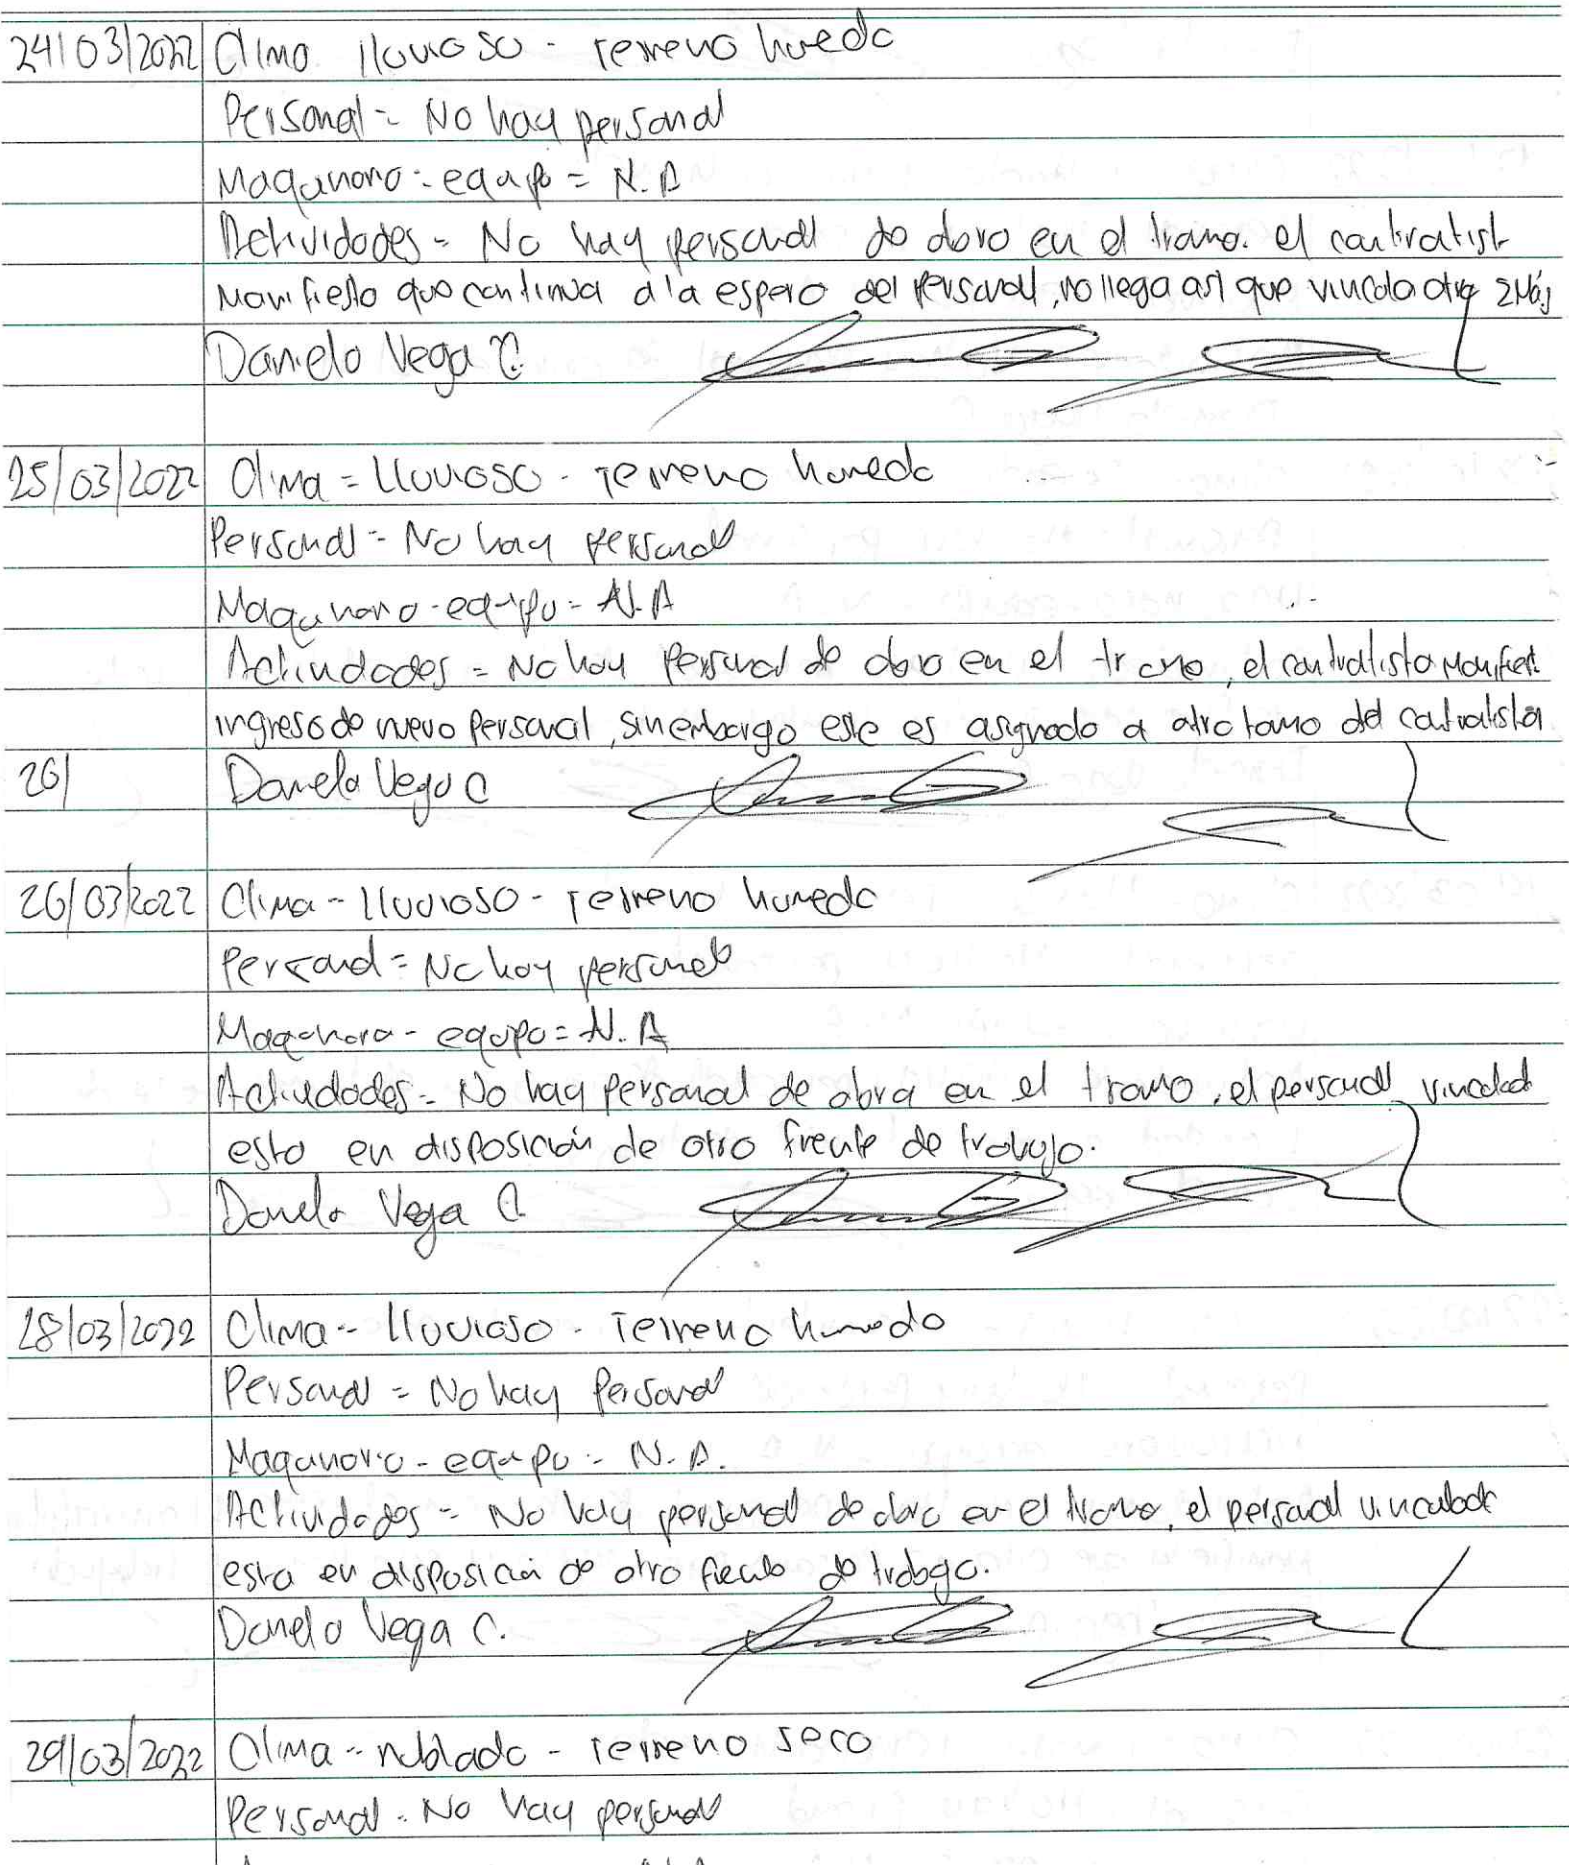 24/03/2022 Clima lluvioso - Terreno húmedo
Personal = No hay personal
Maquinaria - equipo = N.A
Actividades = No hay personal de obra en el tramo. el contratist
Manifiesta que continua a la espera del personal, no llega asi que vincula otra 2 Más
Daniela Vega C.
25/03/2022 Clima = lluvioso - Terreno humedo
Personal = No hay personal
Maquinaria - equipo = N.A
Actividades = No hay Personal de obra en el tramo, el contratista Manifiest
ingreso de nuevo Personal, sin embargo este es asignado a otro tramo del contratista
26/ Daniela Vega C
26/03/2022 Clima - lluvioso - Terreno humedo
Personal = No hay personal
Maquinaria - equipo = N.A
Actividades = No hay personal de obra en el tramo, el personal vinculad
esta en disposición de otro frente de trabajo.
Daniela Vega C.
28/03/2022 Clima - lluvioso - Terreno humedo
Personal = No hay Personal
Maquinaria - equipo = N.A.
Actividades = No hay personal de obra en el tramo, el personal vinculado
esta en disposición de otro frente de trabajo.
Daniela Vega C.
29/03/2022 Clima - nublado - Terreno seco
Personal = No hay personal